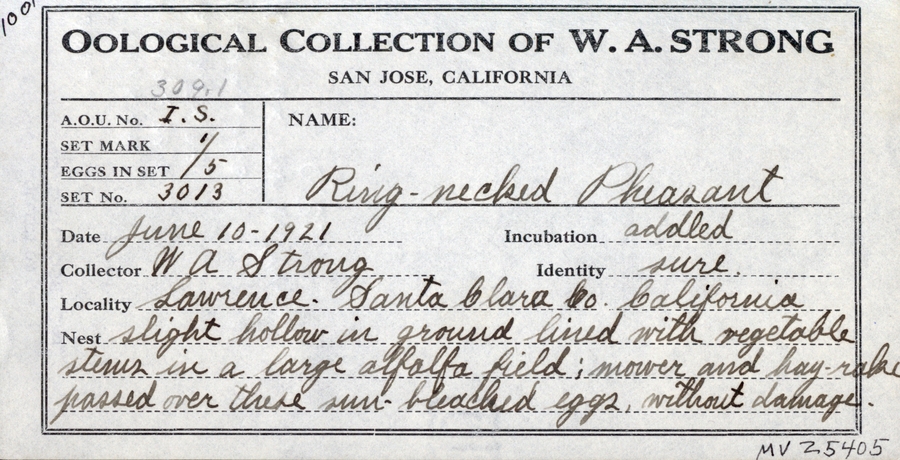 1001
OOLOGICAL COLLECTION OF W. A. STRONG
SAN JOSE, CALIFORNIA
309.1
A.O.U. No. I. S.
SET MARK 1/
EGGS IN SET /5
SET No. 3013
NAME:
Ring-necked Pheasant
Date June 10-1921
Incubation addled
Collector W A Strong
Identity sure.
Locality Lawrence. Santa Clara Co. California
Nest slight hollow in ground lined with vegetable
stems in a large alfalfa field; mower and hay-rake
passed over these sun-bleached eggs, without damage.
MVZ 5405